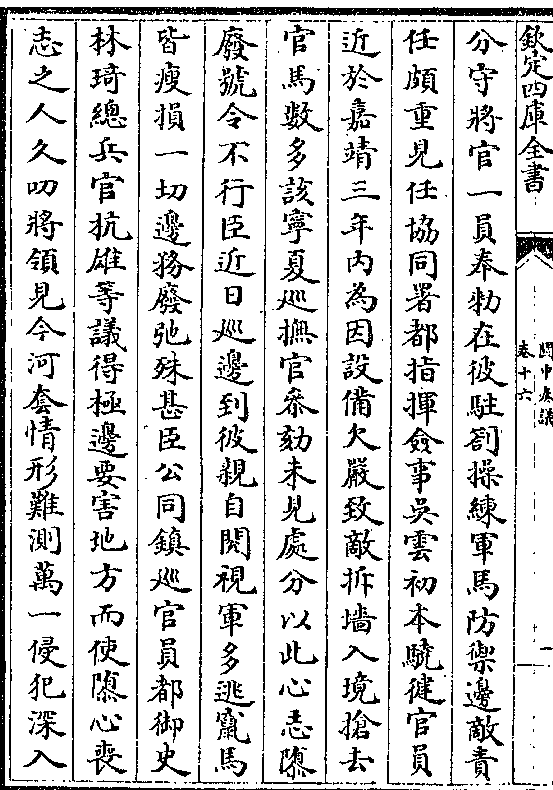 欽定四庫全書
關中奏議
卷十六
一
分守將官一員奉勅在彼駐劄操練軍馬防禦邊敵責
任頗重見任協同署都指揮僉事吳雲初本驍健官員
近於嘉靖三年内為因設備欠嚴致敵拆墻入境搶去
官馬數多該寧夏廵撫官叅劾未見處分以此心志隳
廢號令不行臣近日廵邊到彼親自閲視軍多逃竄馬
皆瘦損一切邊務廢弛殊甚臣公同鎮廵官員都御史
林琦總兵官抗雄等議得極邊要害地方而使隳心喪
志之人久叨將領見今河套情形難測萬一侵犯深入